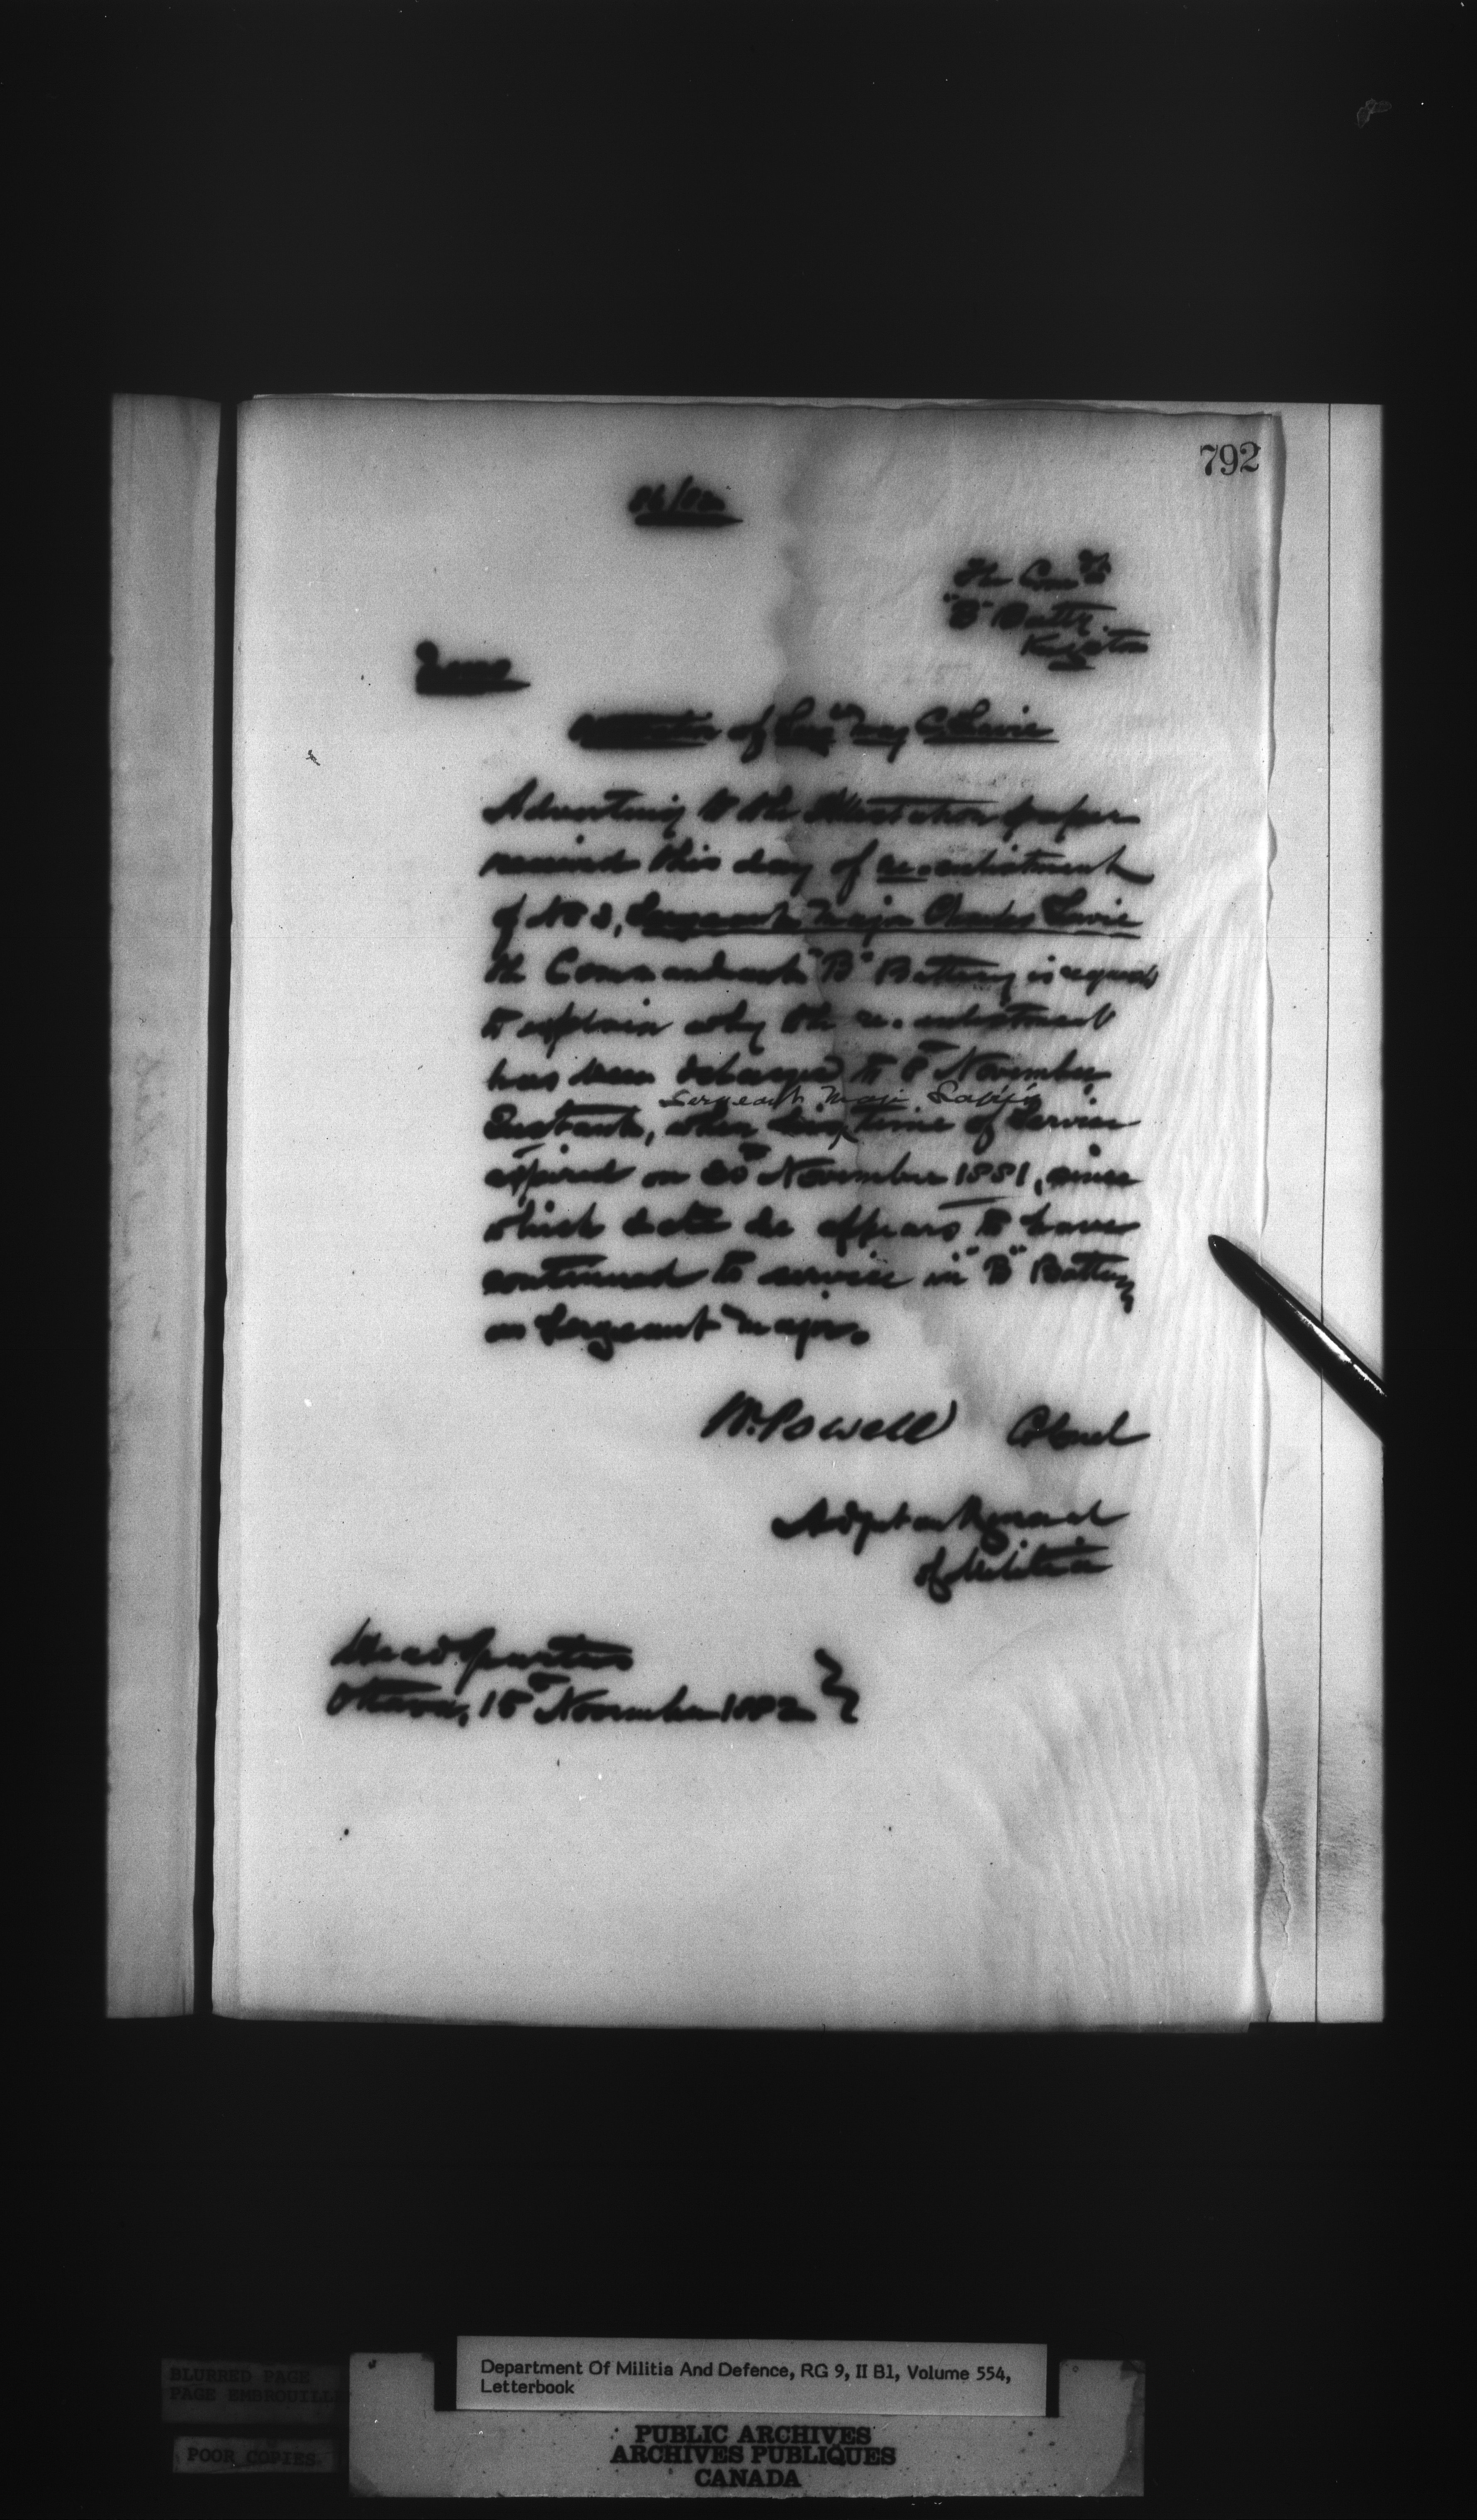 792
The Comdt
"B" Batty.
Kingston
Memo
of Sergt Maj C. Lavie
Adverting to the Attestation paper
received this day of re-enlistment
of No 2, Sergeant Major Charles Lavie
the Commandant "B" Battery is request
to explain why the re-enlistment
has been delayed to 8th November
Sergeant Major
Instant, when his time of Service
expired on 20th November 1881, since
which date he appears to have
continued to service in "B" Battery
as Sergeant Major.
W. Powell Colonel
Adjutant General
of Militia
Head Quarters
Ottawa, 15th November 1882
BLURRED PAGE
PAGE EMBROUILLEE
POOR COPIES.
Department Of Militia And Defence, RG 9, II B1, Volume 554,
Letterbook
PUBLIC ARCHIVES
ARCHIVES PUBLIQUES
CANADA